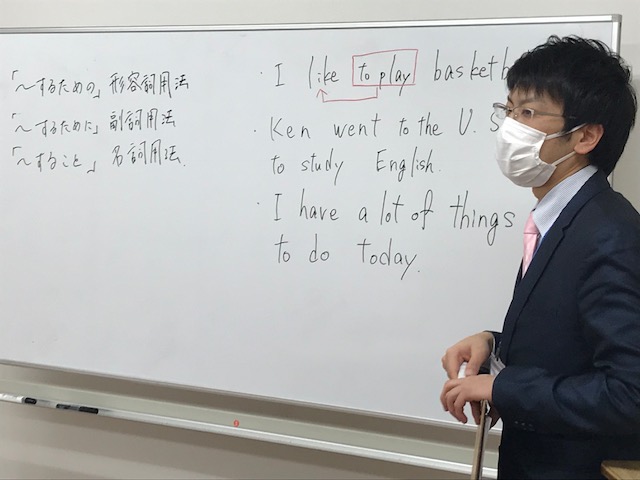 「～するための」形容詞用法
「～するために」副詞用法
「～すること」名詞用法.
・I like to play basketb
・Ken went to the U. S
to study English.
・I have a lot of things
to do today.